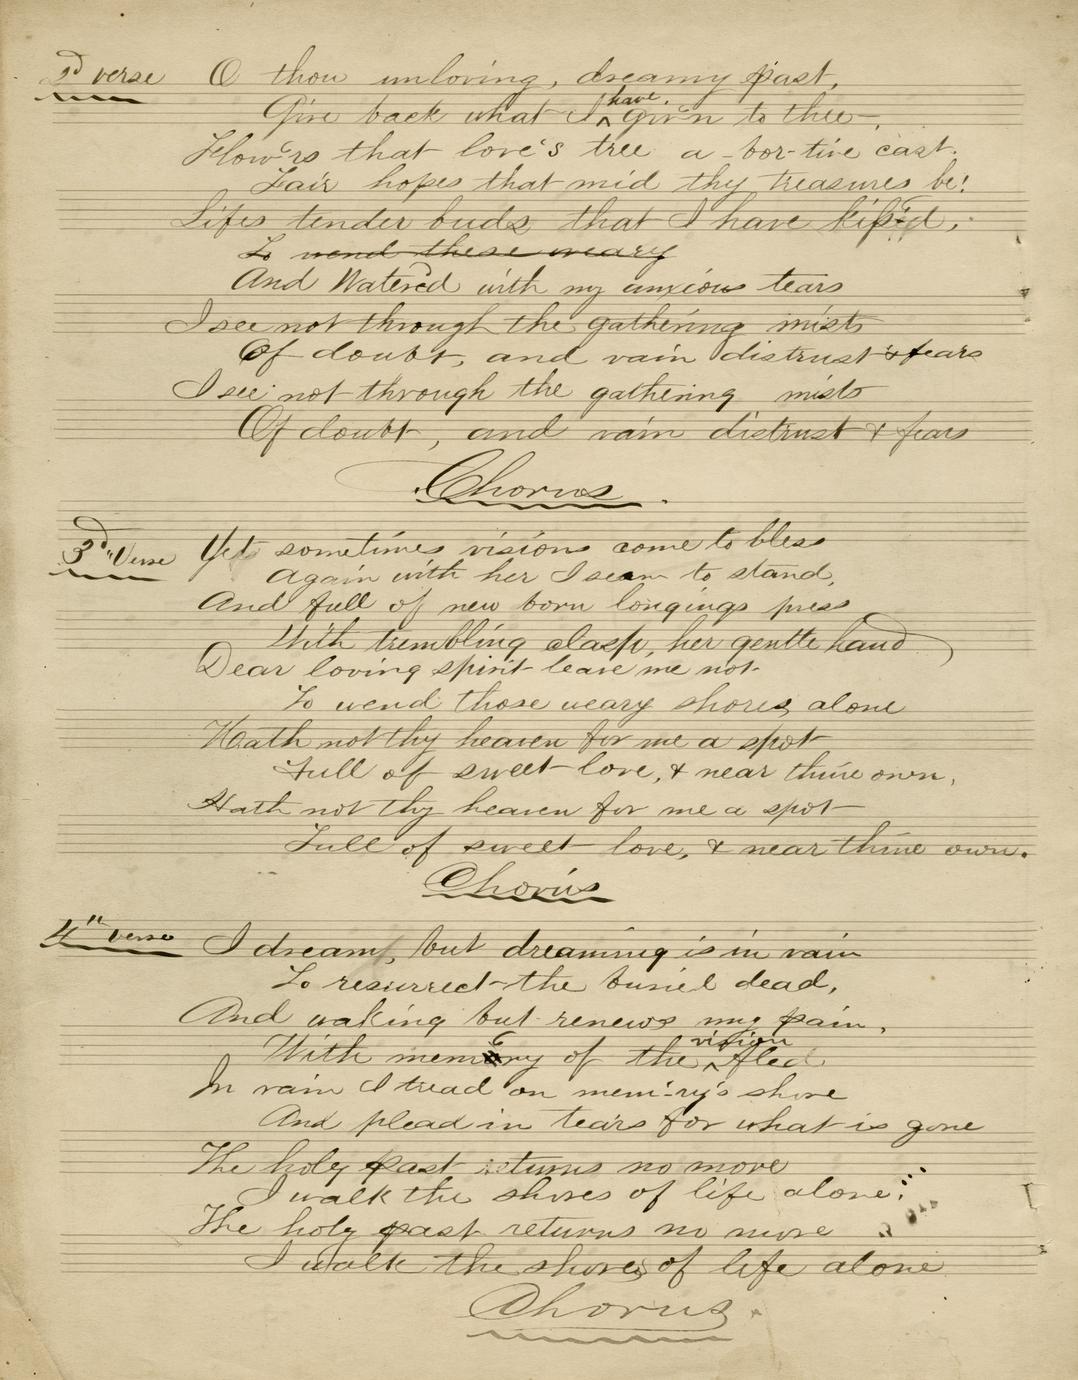 2d verse O thou unloving, dreamy past,
Give back what I have giv'n to thee,
Flow'rs that love's tree a-bor-tive cast.
Fair hopes that mid thy treasures be!
Lifes tender buds that I have kiss'd,
To wend these weary
And Water'd with my anxious tears
I see not through the gathering mists
Of doubt, and vain distrust & fears
I see not through the gathering mists
Of doubt, and vain distrust & fears
Chorus.
3d "Verse Yet sometimes visions come to bless
Again with her I seem to stand,
And full of new born longings press
With trembling clasp, her gentle hand
Dear loving spirit leave me not
To wend those weary shores alone
Hath not thy heaven for me a spot
Full of sweet love, & near thine own,
Hath not thy heaven for me a spot
Full of sweet love, & near thine own.
Chorus
4" verse I dream, but dreaming is in vain
To resurrect the buried dead,
And waking but renews my pain,
With memory of the vision fled
In vain I tread on mem-ry's shore
And plead in tears for what is gone
The holy past returns no more
I walk the shores of life alone:
The holy past returns no more
I walk the shores of life alone
Chorus.